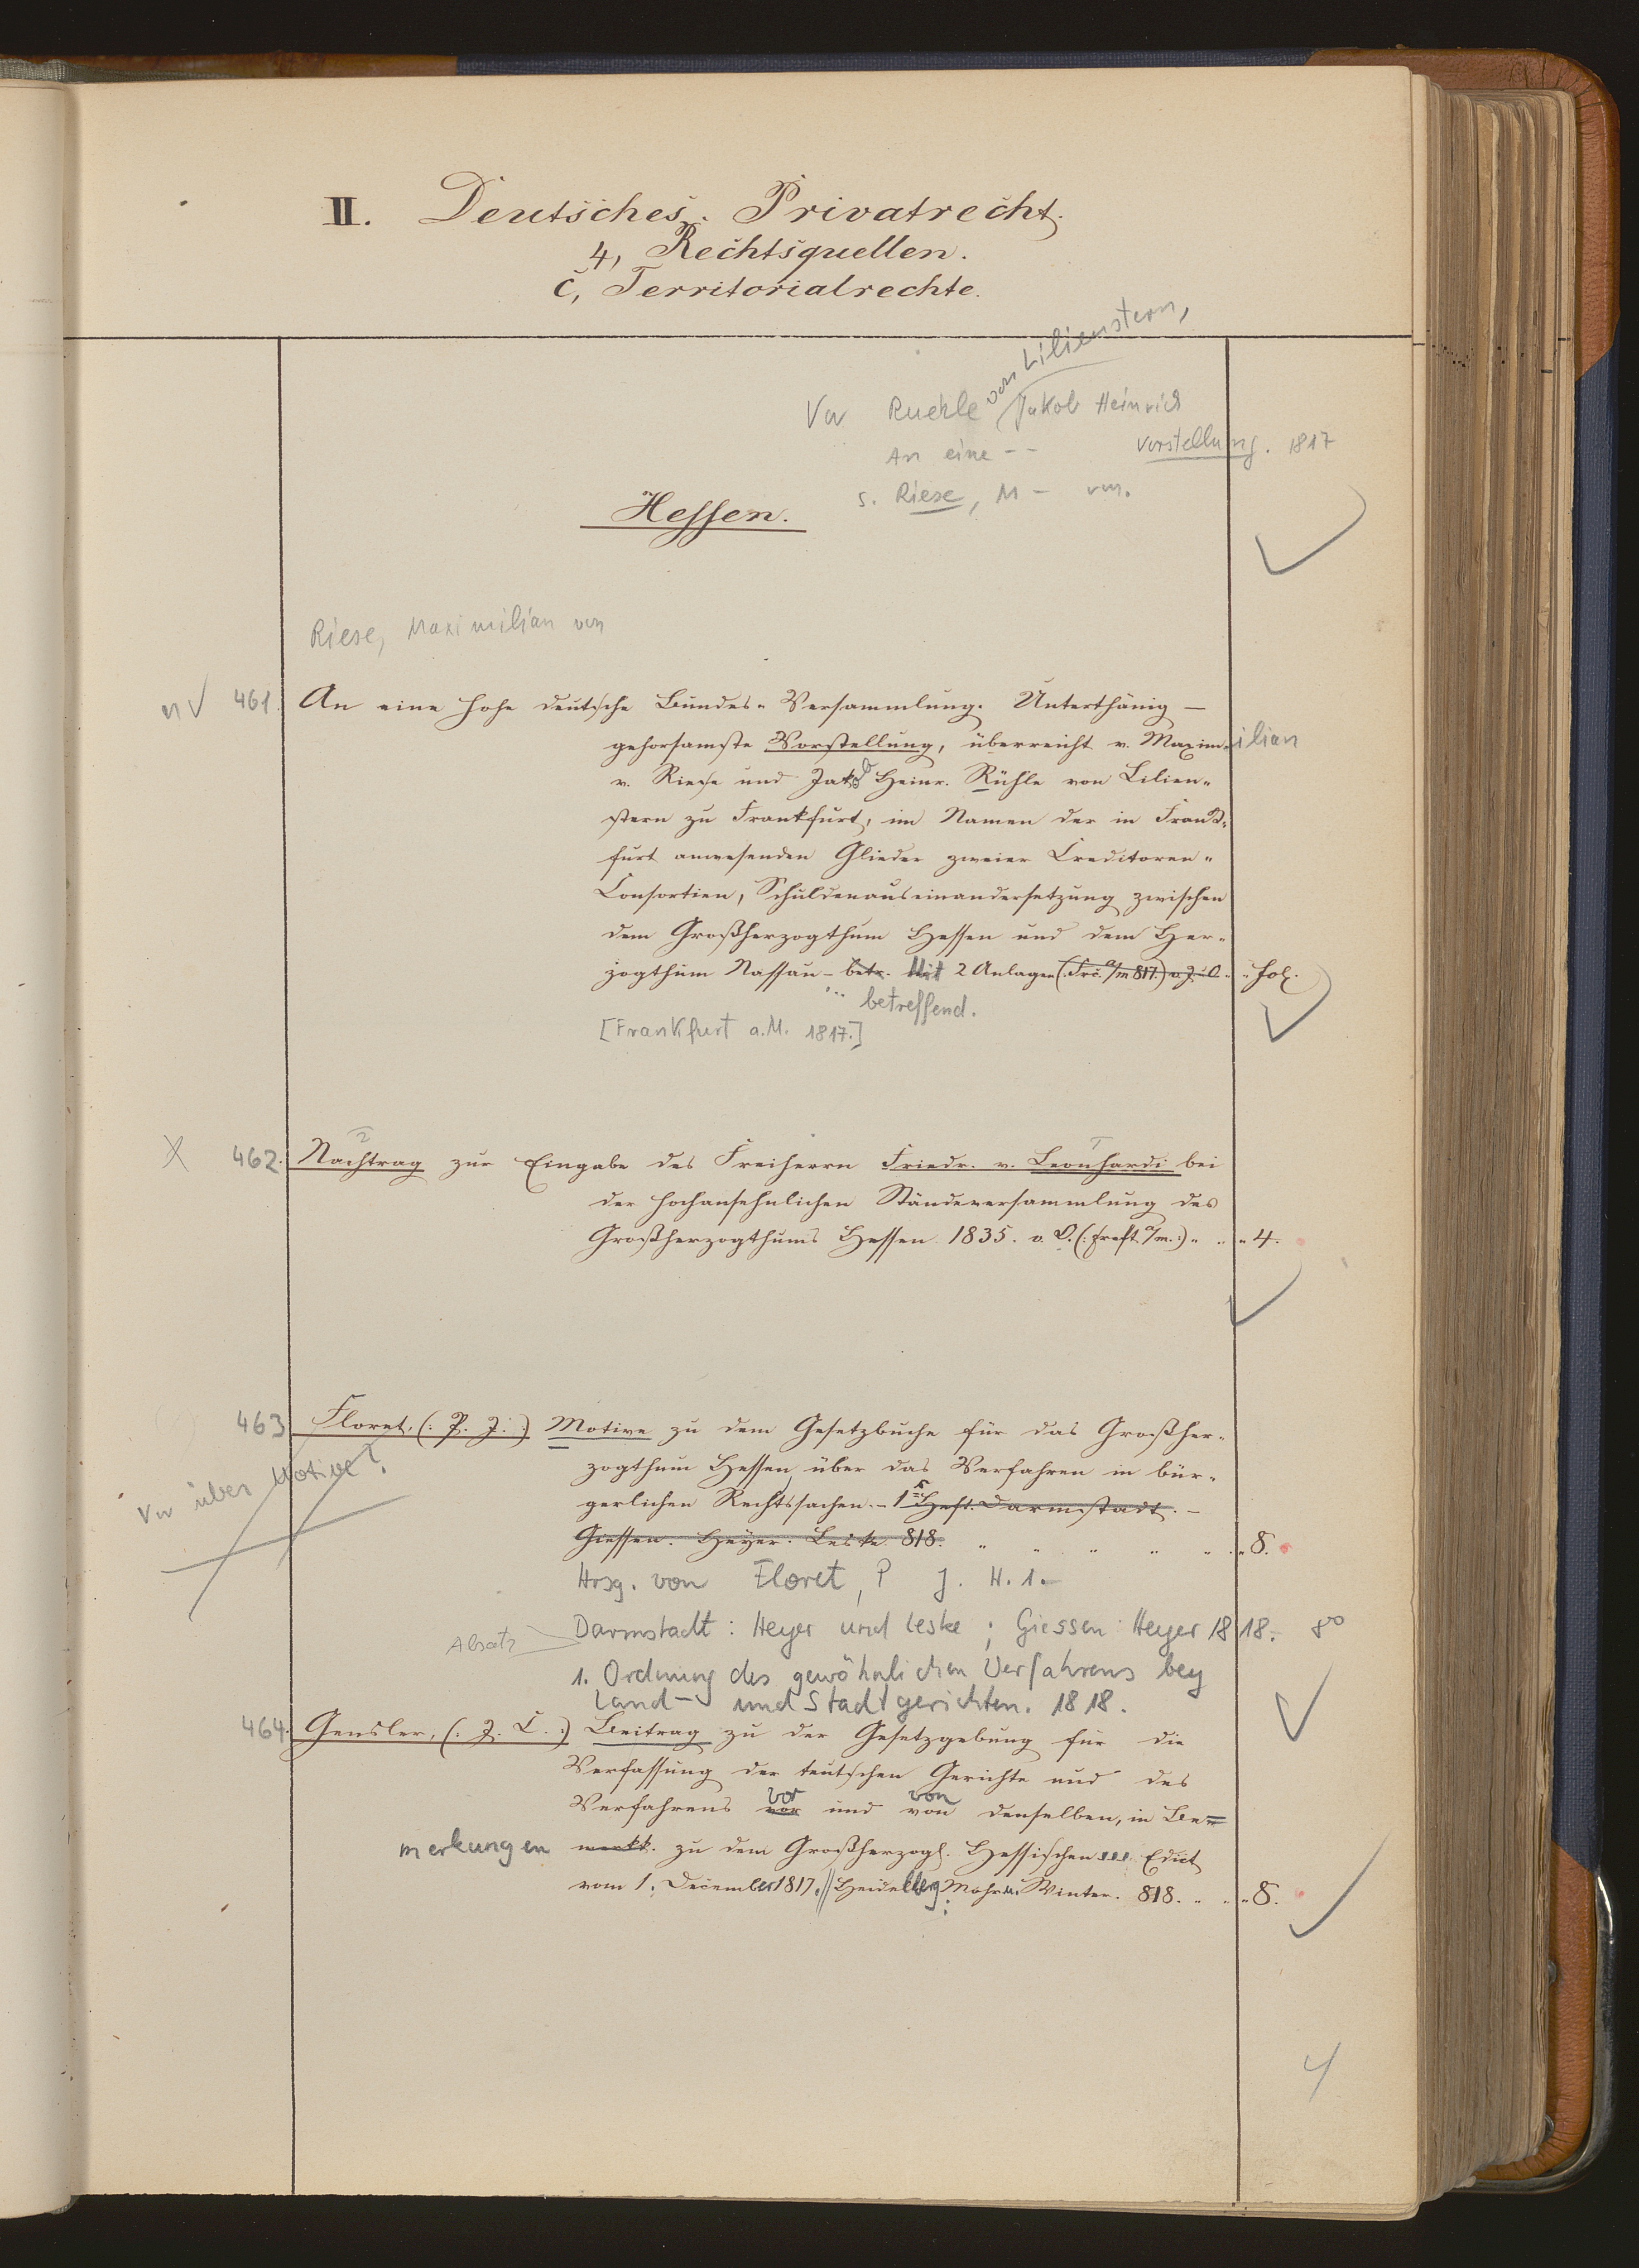 II. Deutsches Privatrecht.
4, Rechtsquellen.
c, Territorialrechte.
von Lilienstern,
Vw Ruehle Jakob Heinrich
An eine -- Vorstellung. 1817
s. Riese, M - von.
Hessen.
Riese, Maximilian von
n 461. An eine hohe deutsche Bundes-Versammlung. Unterthänig-
gehorsamste Vorstellung, überreicht v. Maximilian
v. Riese und Jakob Heinr. Rühle von Lilien-
stern zu Frankfurt, im Namen der in Frank-
furt anwesenden Glieder zweier Creditoren-
Consortien, Schuldenauseinandersetzung zwischen
dem Großherzogthum Hessen und dem Her-
zogthum Nassau - betr. Mit 2 Anlagen (: Frc. a/m 817.) o. J. u. O. fol.
... betreffend.
[Frankfurt a.M. 1817.]
2 1
X 462. Nachtrag zur Eingabe des Freiherrn Friedr. v. Leonhardi bei
der hochansehnlichen Ständeversammlung des
Großherzogthums Hessen 1835. o. O. (: Frkft. a/m. :) " " " 4.
463 Floret, (: P. J. :) Motive zu dem Gesetzbuche für das Großher-
Vw über Motive?
zogthum Hessen über das Verfahren in bür-
gerlichen Rechtssachen. - 1s Heft. Darmstadt. -
Giessen. Heyer. Leske 818. " " " " " " 8.
Hrsg. von Floret, P J. H. 1.-
Absatz Darmstadt: Heyer und Leske; Giessen: Heyer 1818. 8°
1. Ordnung des gewöhnlichen Verfahrens bey
Land- und Stadtgerichten. 1818.
464. Gensler, (: J. C. :) Beitrag zu der Gesetzgebung für die
Verfassung der teutschen Gerichte und des
vor von
Verfahrens vor und von denselben, in Be-
merkungen merkk. zu dem Großherzogl. Hessischen ... Edict
vom 1. December 1817. // Heidelberg: Mohr u. Winter. 818. " " " 8.
4